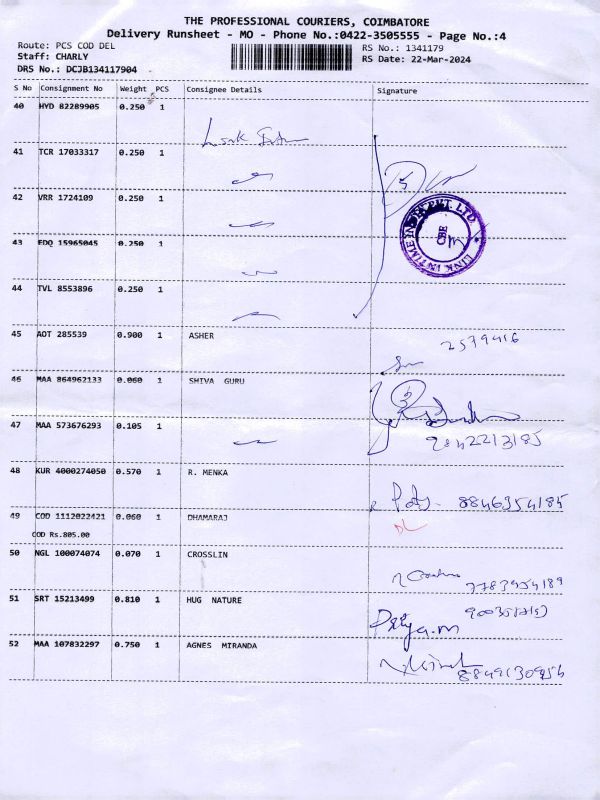 THE PROFESSIONAL COURIERS, COIMBATORE
Delivery Runsheet - MO - Phone No.:0422-3505555 - Page No.:4
Route: PCS COD DEL
Staff: CHARLY
DRS No.: DCJB134117904
RS No.: 1341179
RS Date: 22-Mar-2024
S No Consignment No Weight PCS Consignee Details Signature
40 HYD 82289905 0.250 1
41 TCR 17033317 0.250 1
5
42 VRR 1724109 0.250 1
LINK IN TIME INDIA PVT. LTD
CBE
43 EDQ 15965045 0.250 1
44 TVL 8553896 0.250 1
45 AOT 285539 0.900 1 ASHER
2579416
46 MAA 864962133 0.060 1 SHIVA GURU
47 MAA 573676293 0.105 1
9842213185
48 KUR 4000274050 0.570 1 R. MENKA
8846354185
49 COD 1112022421 0.060 1 DHAMARAJ
DL
COD Rs.805.00
50 NGL 100074074 0.070 1 CROSSLIN
7783954189
51 SRT 15213499 0.810 1 HUG NATURE
Priya.m
52 MAA 107832297 0.750 1 AGNES MIRANDA
8849130956